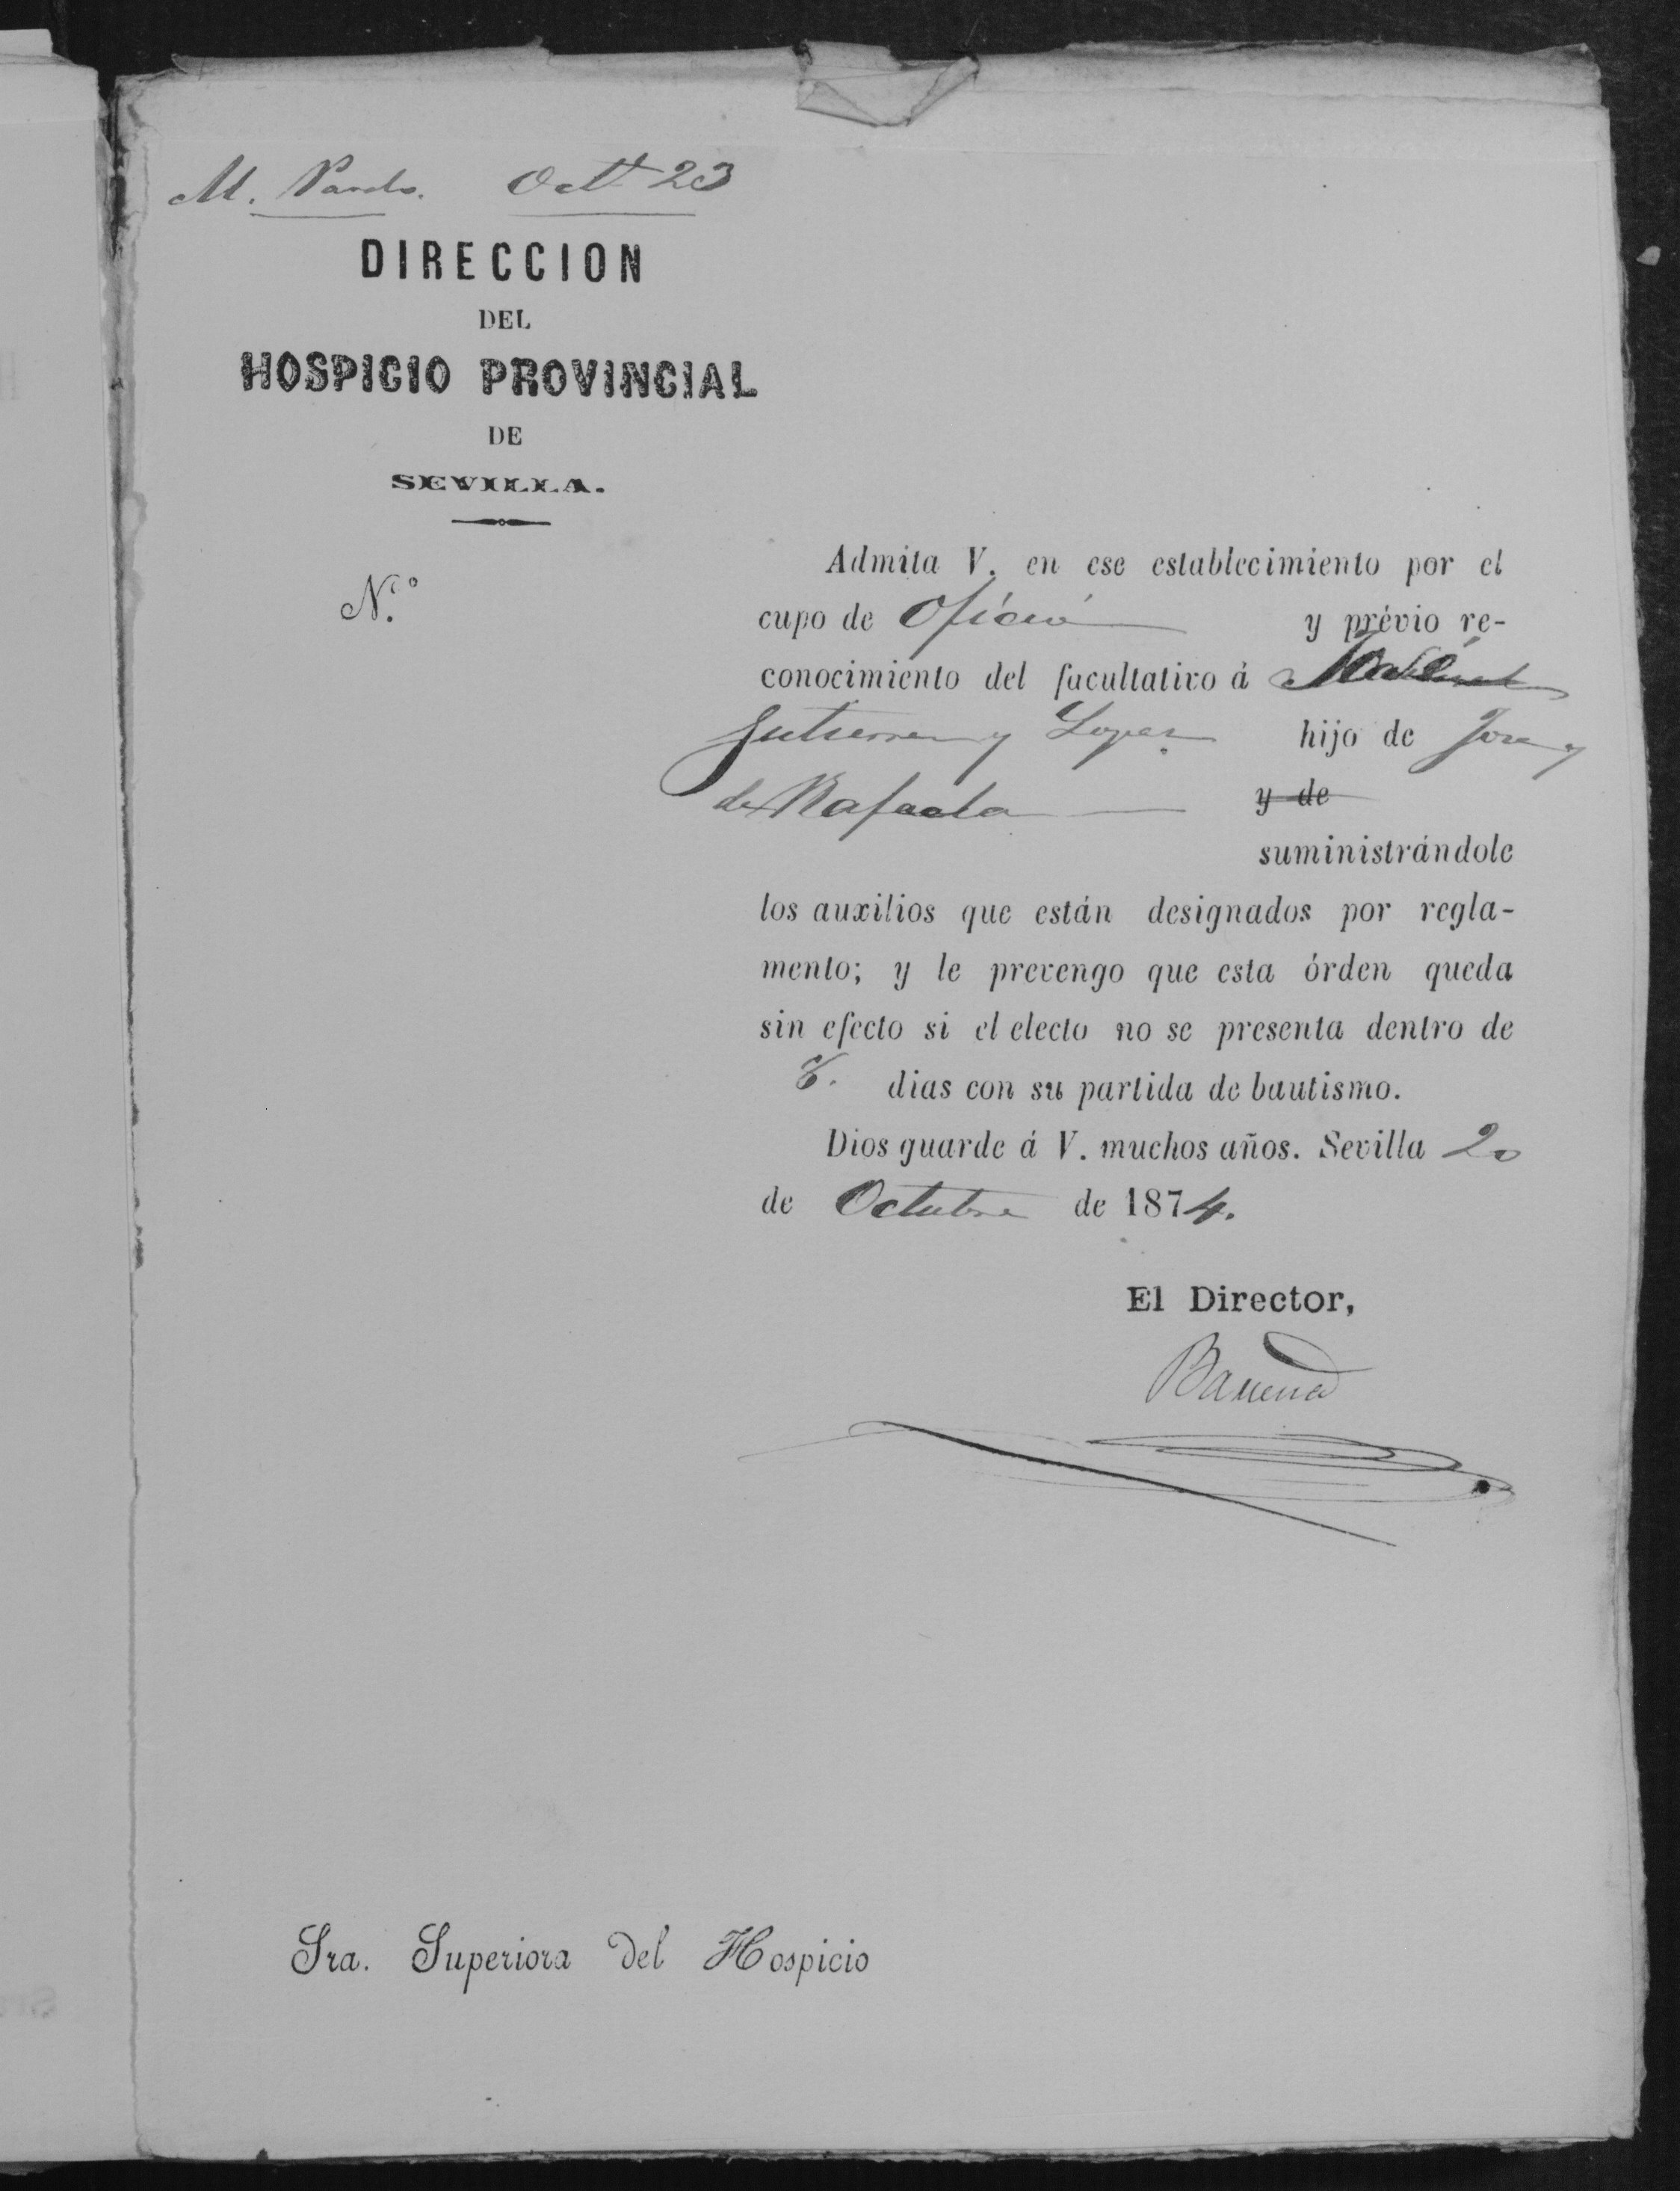 M. Pardo. Octe 23
DIRECCION
DEL
HOSPICIO PROVINCIAL
DE
SEVILLA.
N.º
Admita V. en ese establecimiento por el
cupo de y prévio re-
conocimiento del facultativo á
Gutierrez y Lopez hijo de Jose y
de Rafaela y de
suministrándole
los auxilios que están designados por regla-
mento; y le prevengo que esta órden queda
sin efecto si el electo no se presenta dentro de
8. dias con su partida de bautismo.
Dios guarde á V. muchos años. Sevilla 20
de Octubre de 1874.
El Director,
Sra. Superiora del Hospicio